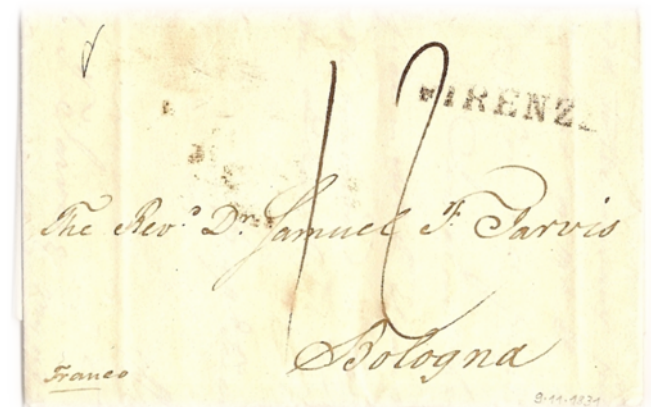 FIRENZE
12
The Rev.d Dr. Samuel F. Jarvis
Bologna
Franco
9-11-1831